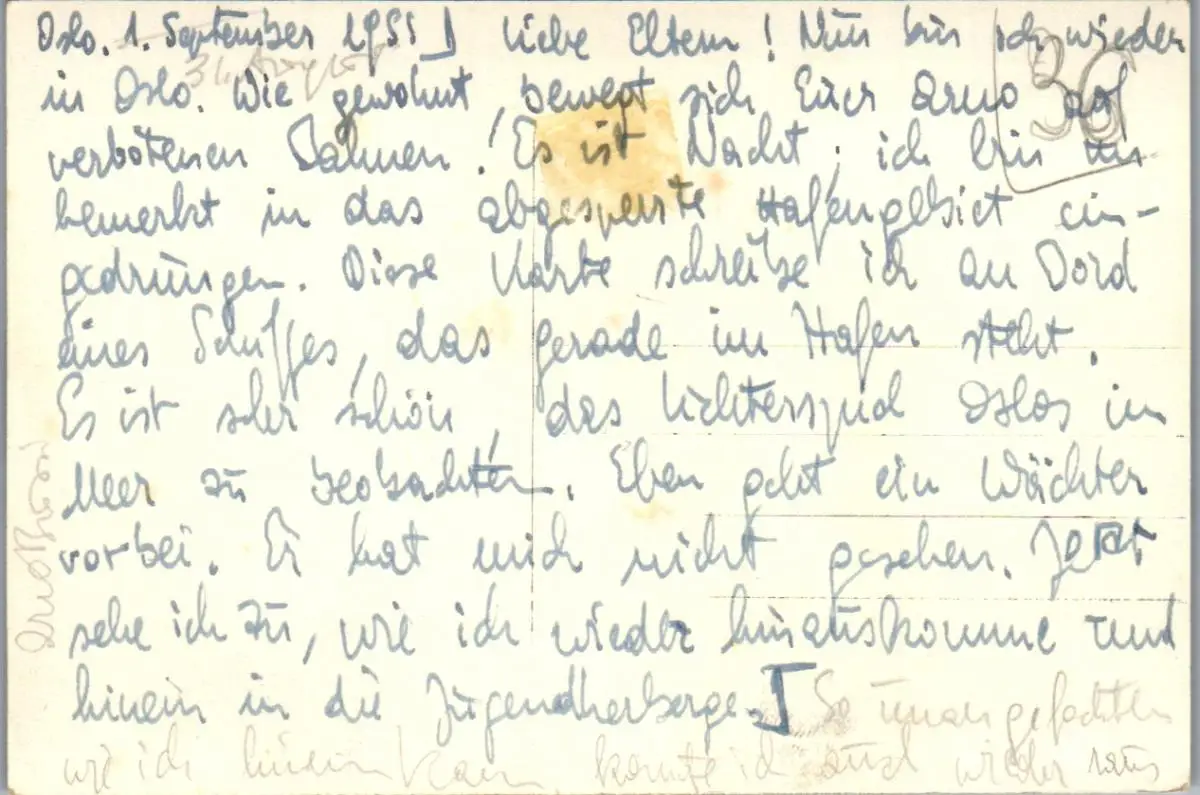 Oslo. 1. September 1955 ⌋ Liebe Eltern! Nun bin ich wieder
31. August
36
in Oslo. Wie gewohnt, bewegt sich Euer Arno auf
verbotenen Bahnen! Es ist Nacht; ich bin un
bemerkt in das abgesperrte Hafengebiet ein-
gedrungen. Diese Karte schreibe ich an Bord
eines Schiffes, das gerade im Hafen steht.
Es ist sehr schön, das Lichterspiel Oslos im
Meer zu beobachten. Eben geht ein Wächter
vorbei. Er hat mich nicht gesehen. Jetzt
sehe ich zu, wie ich wieder hinauskomme und
hinein in die Jugendherberge. ⌋ So unangefochten
wie ich hineinkam, konnte ich auch wieder raus